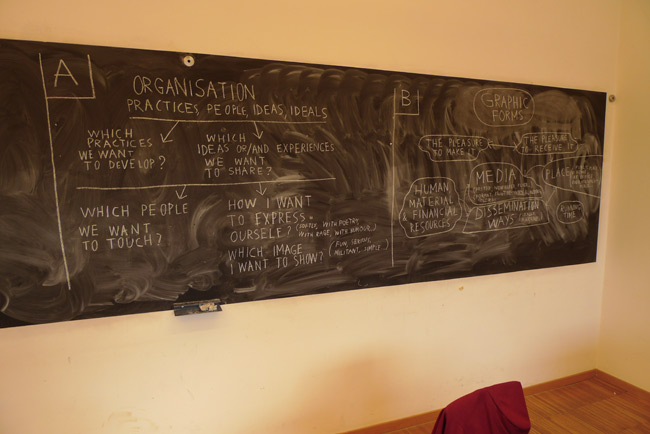 A
ORGANISATION
PRACTICES, PEOPLE, IDEAS, IDEALS
WHICH
PRACTICES
WE WANT
TO DEVELOP?
WHICH
IDEAS OR/AND EXPERIENCES
WE WANT
TO SHARE?
WHICH PEOPLE
WE WANT
TO TOUCH?
HOW I WANT
TO EXPRESS
OURSELF?
WITH POETRY,
WITH RAGE, WITH HUMOUR
WHICH IMAGE
I WANT TO SHOW?
(FUN, SERIOUS,
MILITANT, SIMPLE
B
GRAPHIC
FORMS
THE PLEASURE
TO MAKE IT
THE PLEASURE
TO RECEIVE IT
MEDIA
PLACE
HUMAN
MATERIAL
& FINANCIAL
RESOURCES
DISSEMINATION
WAYS
TIME